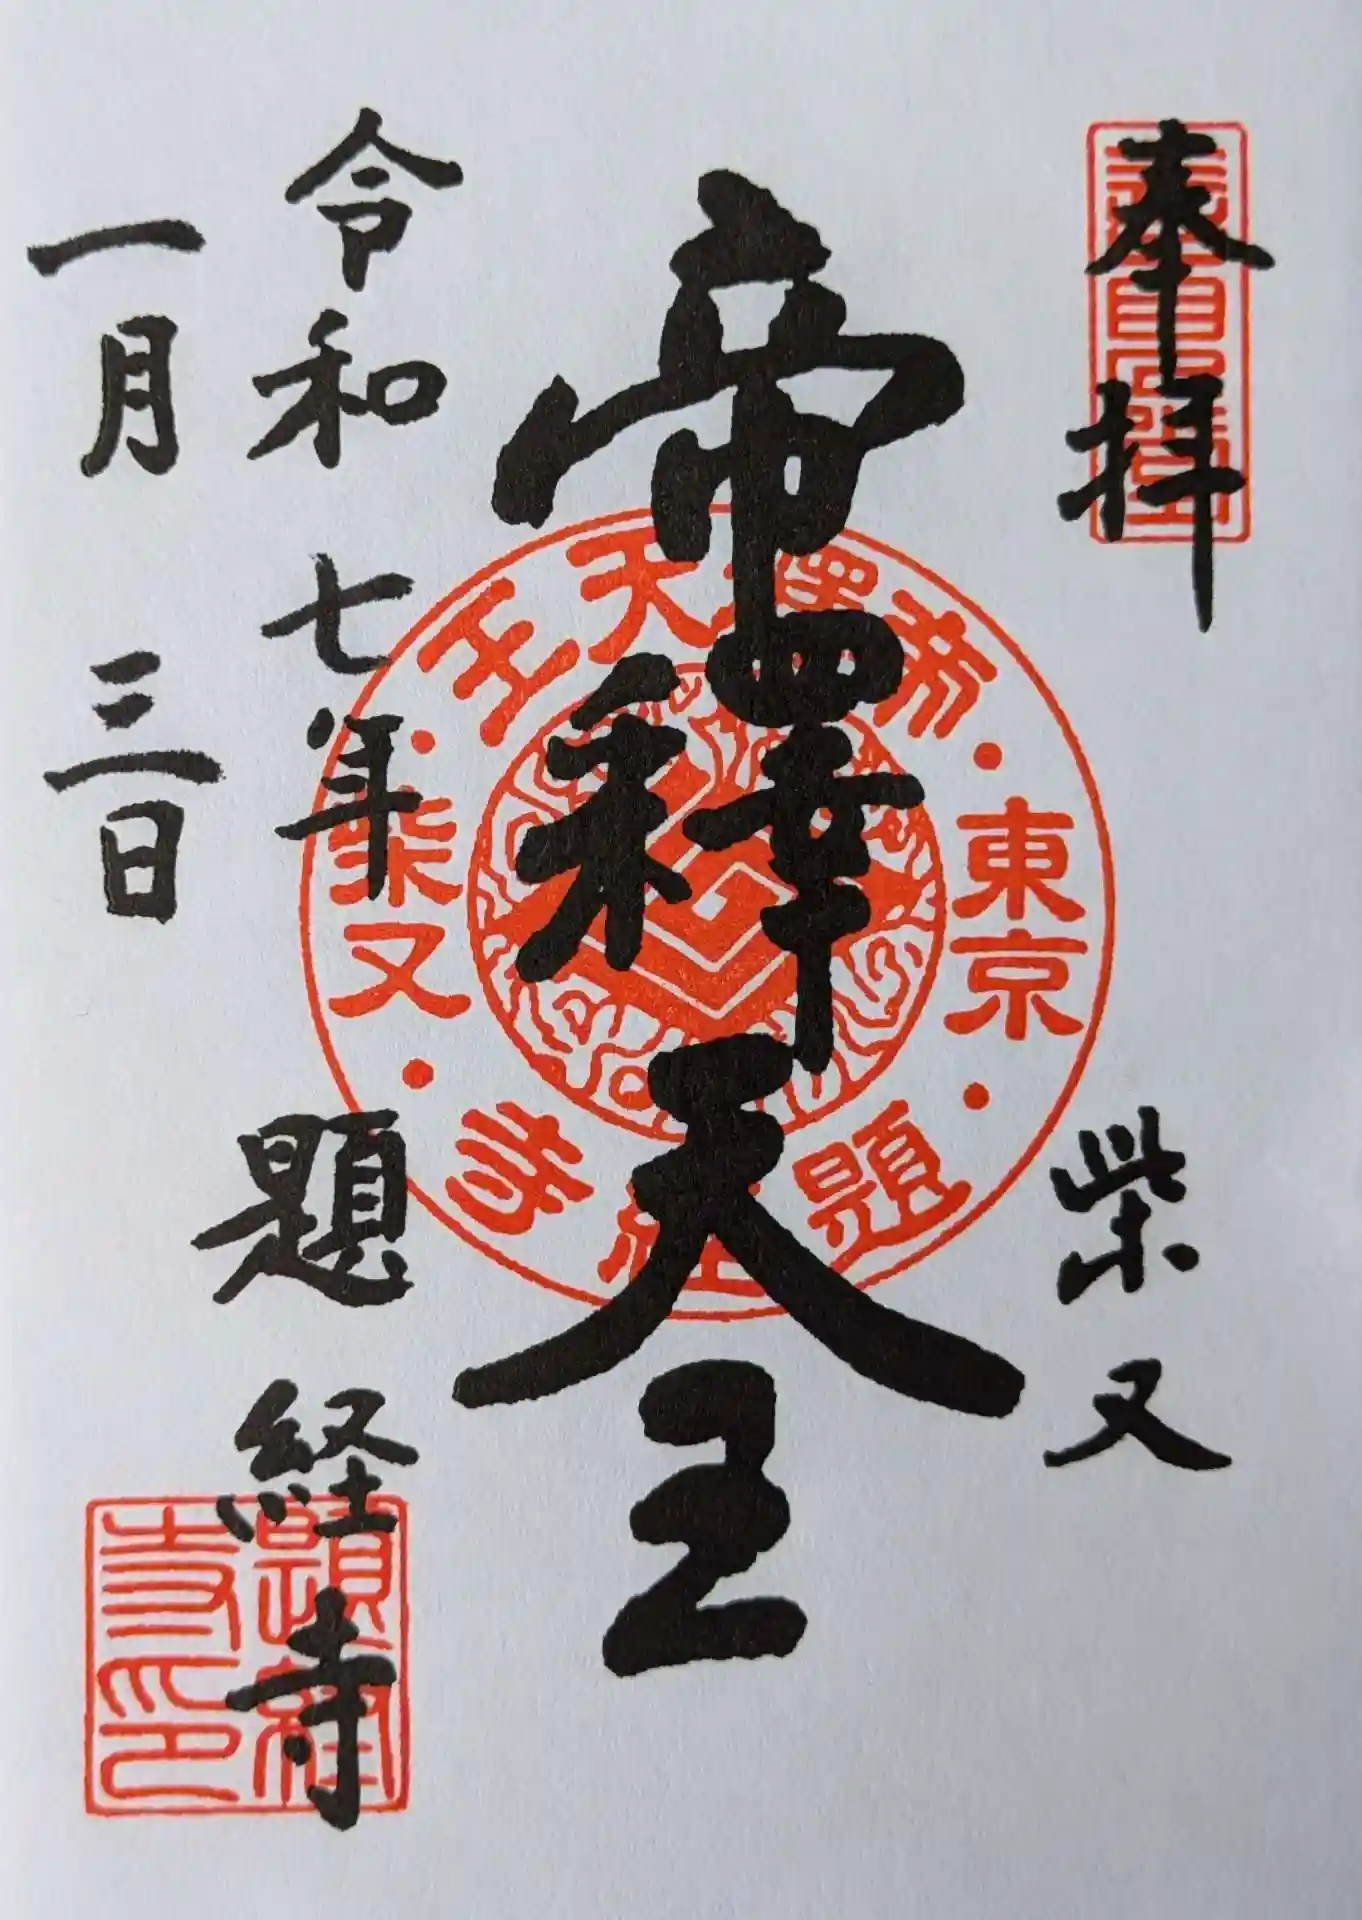 奉拝
柴又
帝釋天王
令和七年
一月三日
題経寺
帝釋天王
東京
柴又
題経寺
題経寺印